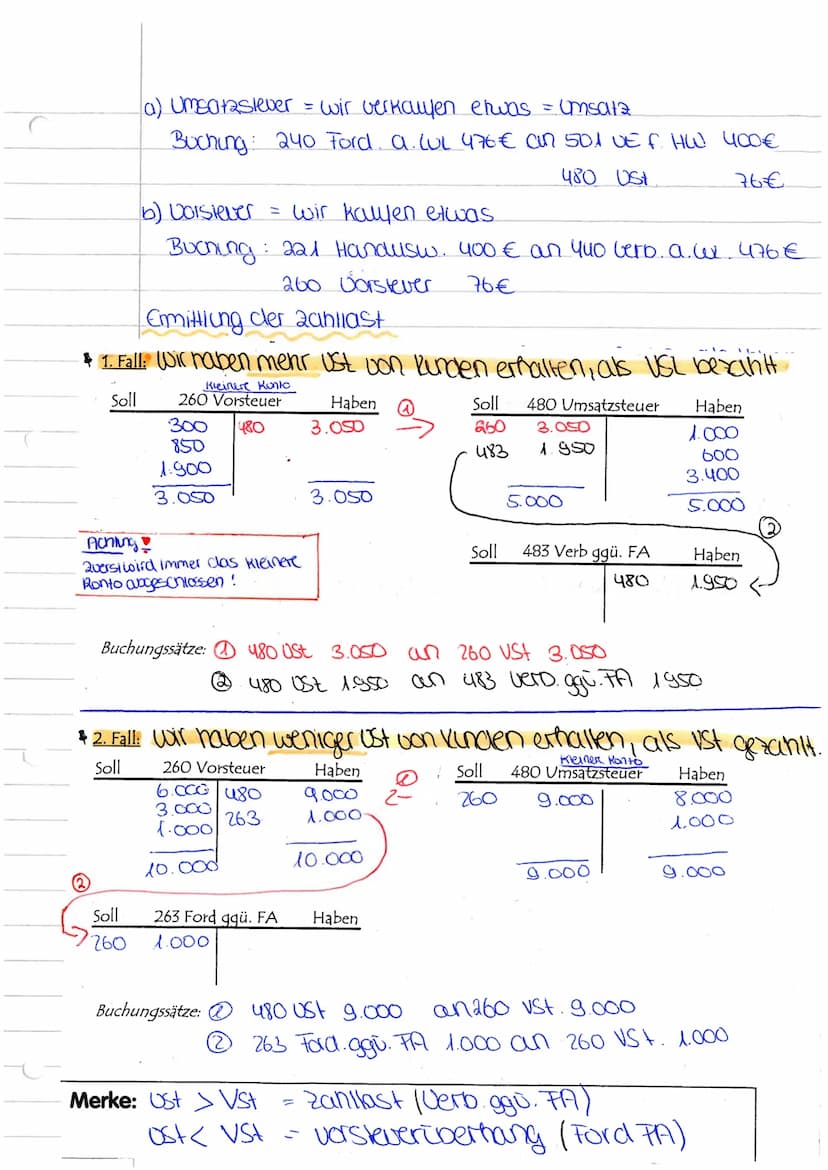 a) Umsatzsteuer = wir verkaufen etwas = Umsatz
Buchung: 240 Ford. a. LuL 476€ an 501 UE f. HW 400€
480 USt 76€
b) Vorsteuer = wir kaufen etwas
Buchung: 221 Handelsw. 400 € an 440 Verb. a. LuL. 476 €
260 Vorsteuer 76€
Ermittlung der Zahllast
1. Fall: Wir haben mehr USt von Kunden erhalten, als VSt bezahlt
kleinere Konto
Soll 260 Vorsteuer Haben ① Soll 480 Umsatzsteuer Haben
300 480 3.050 260 3.050 1.000
850 483 1.950 600
1.900 3.400
3.050 3.050 5.000 5.000
②
Achtung!
Zuerst wird immer das kleinere
Konto abgeschlossen!
Soll 483 Verb ggü. FA Haben
480 1.950
Buchungssätze: ① 480 USt 3.050 an 260 VSt 3.050
② 480 USt 1950 an 483 Verb. ggü. FA 1950
2. Fall: Wir haben weniger USt von Kunden erhalten, als VSt gezahlt.
kleiner Konto
Soll 260 Vorsteuer Haben ① Soll 480 Umsatzsteuer Haben
6.000 480 9.000 260 9.000 8.000
3.000 263 1.000 1.000
1.000
10.000 10.000 9.000 9.000
②
Soll 263 Ford ggü. FA Haben
260 1.000
Buchungssätze: ① 480 USt 9.000 an 260 VSt. 9.000
② 263 Ford. ggü. FA 1.000 an 260 VSt. 1.000
Merke: USt > VSt = Zahllast (Verb. ggü. FA)
USt < VSt = Vorsteuerüberhang (Ford FA)